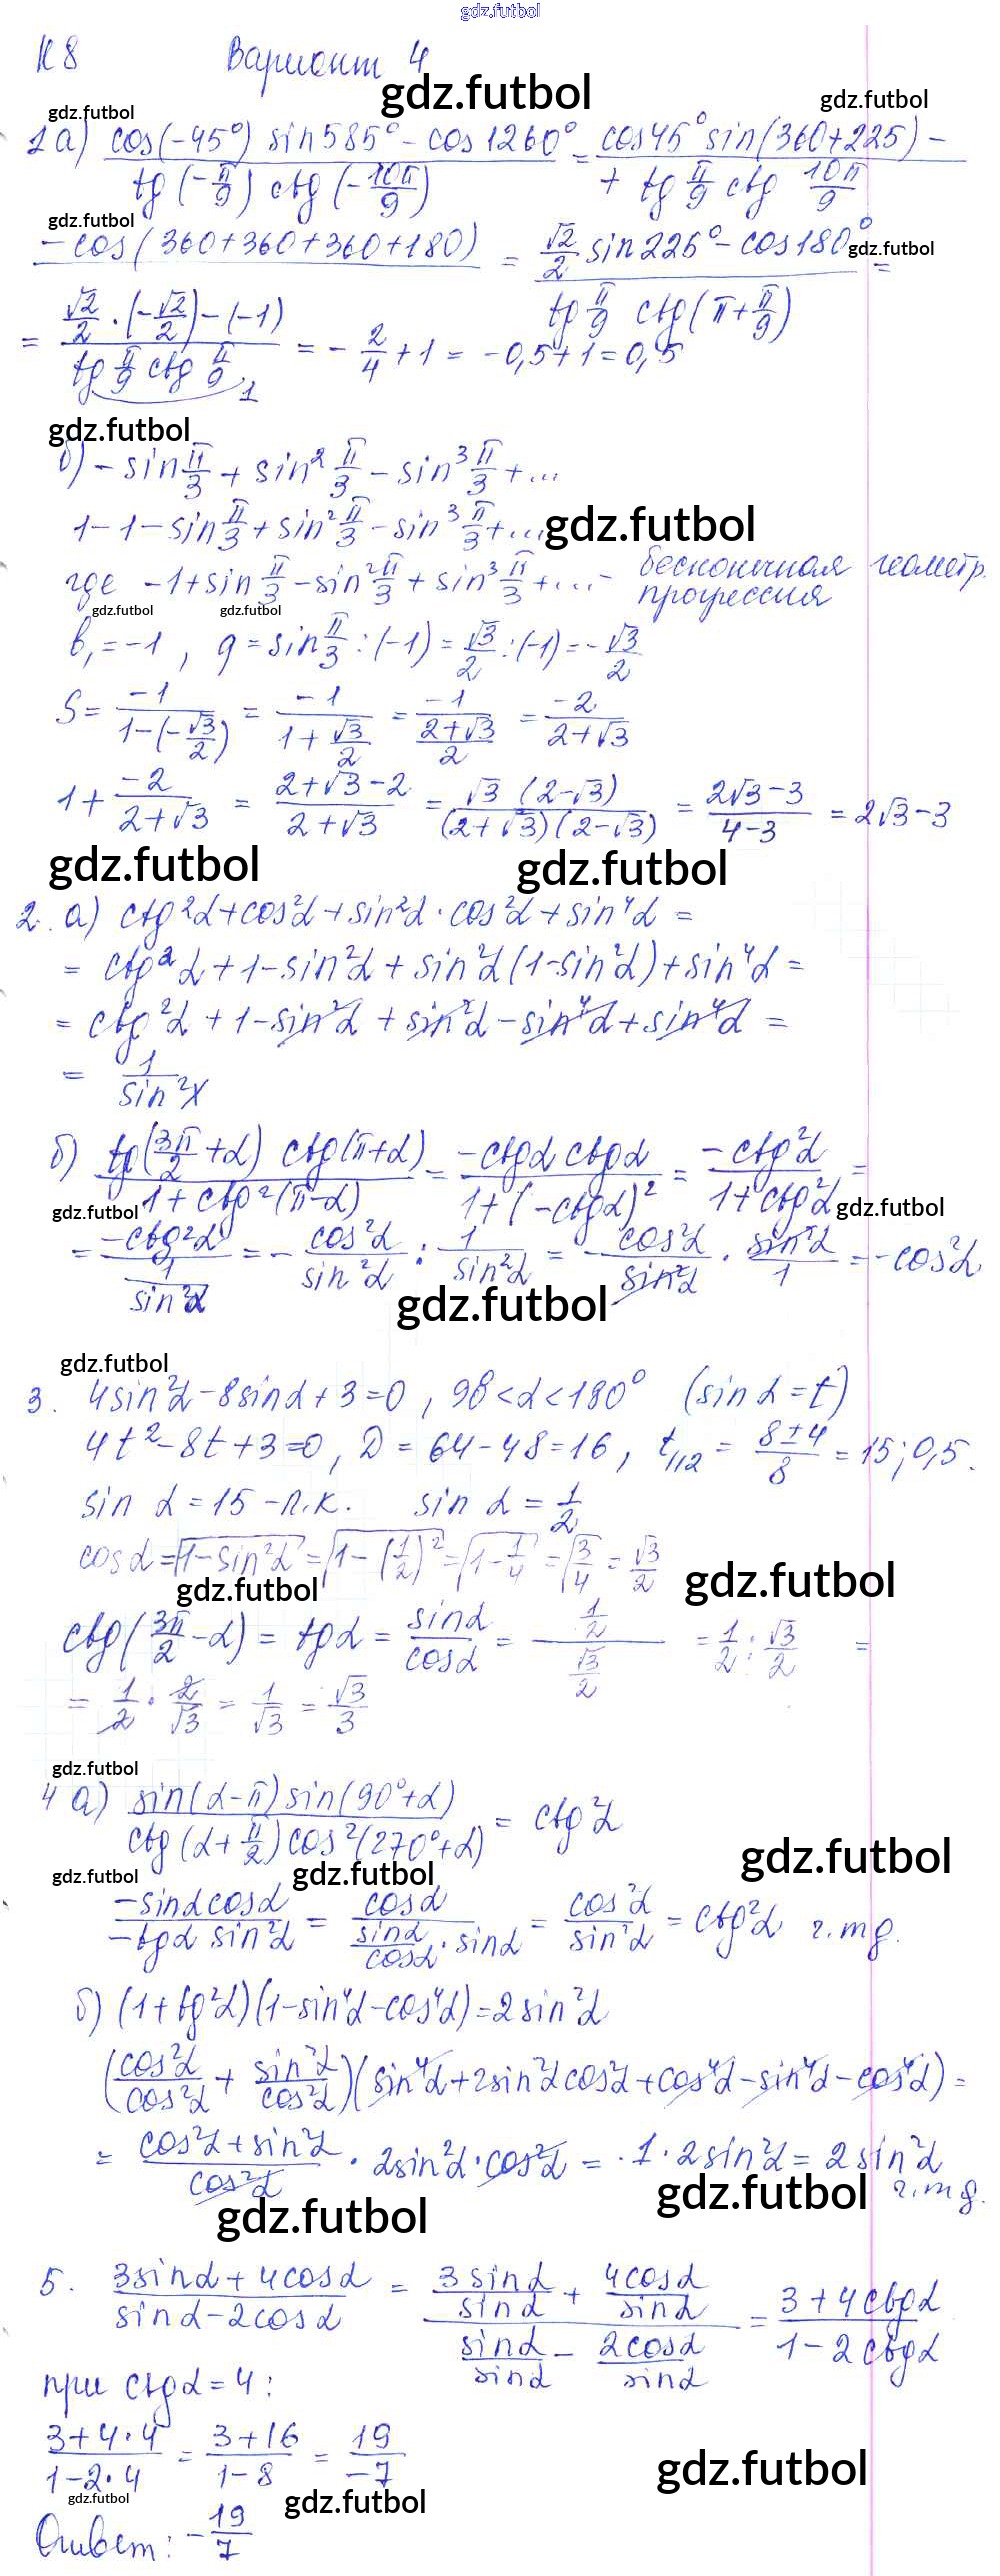 gdz.futbol
К 8 Вариант 4
gdz.futbol gdz.futbol gdz.futbol
1 а) cos(-45°) sin585° - cos1260° / tg(-π/9) ctg(-10π/9) = cos45° sin(360+225) - / + tg π/9 ctg 10π/9
gdz.futbol gdz.futbol
-cos(360+360+360+180) = √2/2 sin225° - cos180° / tg π/9 ctg(π+π/9) =
= √2/2 · (-√2/2) - (-1) / tg π/9 ctg π/9 = - 2/4 + 1 = -0,5+1 = 0,5
1
gdz.futbol
б) - sin π/3 + sin² π/3 - sin³ π/3 + ...
1 - 1 - sin π/3 + sin² π/3 - sin³ π/3 + ... gdz.futbol
где -1 + sin π/3 - sin² π/3 + sin³ π/3 + ... - бесконечная геометр.
прогрессия
gdz.futbol gdz.futbol
b₁ = -1, q = sin π/3 : (-1) = √3/2 : (-1) = - √3/2
S = -1 / 1-(-√3/2) = -1 / 1+√3/2 = -1 / (2+√3)/2 = -2 / 2+√3
1 + -2 / 2+√3 = 2+√3-2 / 2+√3 = √3 (2-√3) / (2+√3)(2-√3) = 2√3-3 / 4-3 = 2√3-3
gdz.futbol gdz.futbol
2. а) ctg²α + cos²α + sin²α · cos²α + sin⁴α =
= ctg²α + 1 - sin²α + sin²α (1-sin²α) + sin⁴α =
= ctg²α + 1 - sin²α + sin²α - sin⁴α + sin⁴α =
= 1 / sin²x
б) tg(3π/2+α) ctg(π+α) / 1+ctg²(π-α) = -ctgα ctgα / 1+(-ctgα)² = -ctg²α / 1+ctg²α =
gdz.futbol gdz.futbol
= -ctg²α / 1/sin²α = - cos²α/sin²α : 1/sin²α = - cos²α/sin²α · sin²α/1 = -cos²α
gdz.futbol
gdz.futbol
3. 4sin²α - 8sinα + 3 = 0, 90 < α < 180° (sin α = t)
4t² - 8t + 3 = 0, D = 64 - 48 = 16, t₁,₂ = 8±4 / 8 = 15; 0,5.
sin α = 15 - п.к. sin α = 1/2
cosα = √1-sin²α = √1-(1/2)² = √1-1/4 = √3/4 = √3/2
gdz.futbol gdz.futbol
ctg(3π/2-α) = tgα = sinα/cosα = 1/2 / √3/2 = 1/2 : √3/2 =
= 1/2 · 2/√3 = 1/√3 = √3/3
gdz.futbol
4 а) sin(α-π) sin(90°+α) / ctg(α+π/2) cos²(270°+α) = ctg²α
gdz.futbol gdz.futbol gdz.futbol
-sinα cosα / -tgα sin²α = cosα / sinα/cosα · sinα = cos²α/sin²α = ctg²α ч.тд.
б) (1+tg²α)(1-sin⁴α-cos⁴α) = 2sin²α
(cos²α/cos²α + sin²α/cos²α)(sin⁴α+2sin²α cos²α+cos⁴α-sin⁴α-cos⁴α) =
= cos²α+sin²α / cos²α · 2sin²α · cos²α = · 1 · 2sin²α = 2sin²α
ч.тд.
gdz.futbol gdz.futbol
5. 3sinα+4cosα / sinα-2cosα = 3sinα/sinα + 4cosα/sinα / sinα/sinα - 2cosα/sinα = 3+4ctgα / 1-2ctgα
при ctgα = 4:
3+4·4 / 1-2·4 = 3+16 / 1-8 = 19/-7
gdz.futbol
gdz.futbol gdz.futbol
Ответ: - 19/7